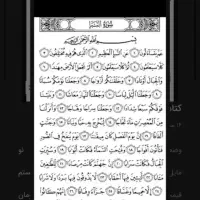 سُورَةُ النَّبَإِ
بِسْمِ اللَّهِ الرَّحْمَٰنِ الرَّحِيمِ
عَمَّ يَتَسَاءَلُونَ ١ عَنِ النَّبَإِ الْعَظِيمِ ٢ الَّذِي هُمْ فِيهِ مُخْتَلِفُونَ ٣
كَلَّا سَيَعْلَمُونَ ٤ ثُمَّ كَلَّا سَيَعْلَمُونَ ٥ أَلَمْ نَجْعَلِ الْأَرْضَ مِهَادًا ٦
وَالْجِبَالَ أَوْتَادًا ٧ وَخَلَقْنَاكُمْ أَزْوَاجًا ٨ وَجَعَلْنَا نَوْمَكُمْ سُبَاتًا
٩ وَجَعَلْنَا اللَّيْلَ لِبَاسًا ١٠ وَجَعَلْنَا النَّهَارَ مَعَاشًا ١١ وَبَنَيْنَا
فَوْقَكُمْ سَبْعًا شِدَادًا ١٢ وَجَعَلْنَا سِرَاجًا وَهَّاجًا ١٣ وَأَنْزَلْنَا
مِنَ الْمُعْصِرَاتِ مَاءً ثَجَّاجًا ١٤ لِنُخْرِجَ بِهِ حَبًّا وَنَبَاتًا ١٥ وَجَنَّاتٍ
أَلْفَافًا ١٦ إِنَّ يَوْمَ الْفَصْلِ كَانَ مِيقَاتًا ١٧ يَوْمَ يُنْفَخُ فِي الصُّورِ
فَتَأْتُونَ أَفْوَاجًا ١٨ وَفُتِحَتِ السَّمَاءُ فَكَانَتْ أَبْوَابًا ١٩ وَسُيِّرَتِ
الْجِبَالُ فَكَانَتْ سَرَابًا ٢٠ إِنَّ جَهَنَّمَ كَانَتْ مِرْصَادًا ٢١ لِلطَّاغِينَ
مَآبًا ٢٢ لَابِثِينَ فِيهَا أَحْقَابًا ٢٣ لَا يَذُوقُونَ فِيهَا بَرْدًا وَلَا شَرَابًا
٢٤ إِلَّا حَمِيمًا وَغَسَّاقًا ٢٥ جَزَاءً وِفَاقًا ٢٦ إِنَّهُمْ كَانُوا